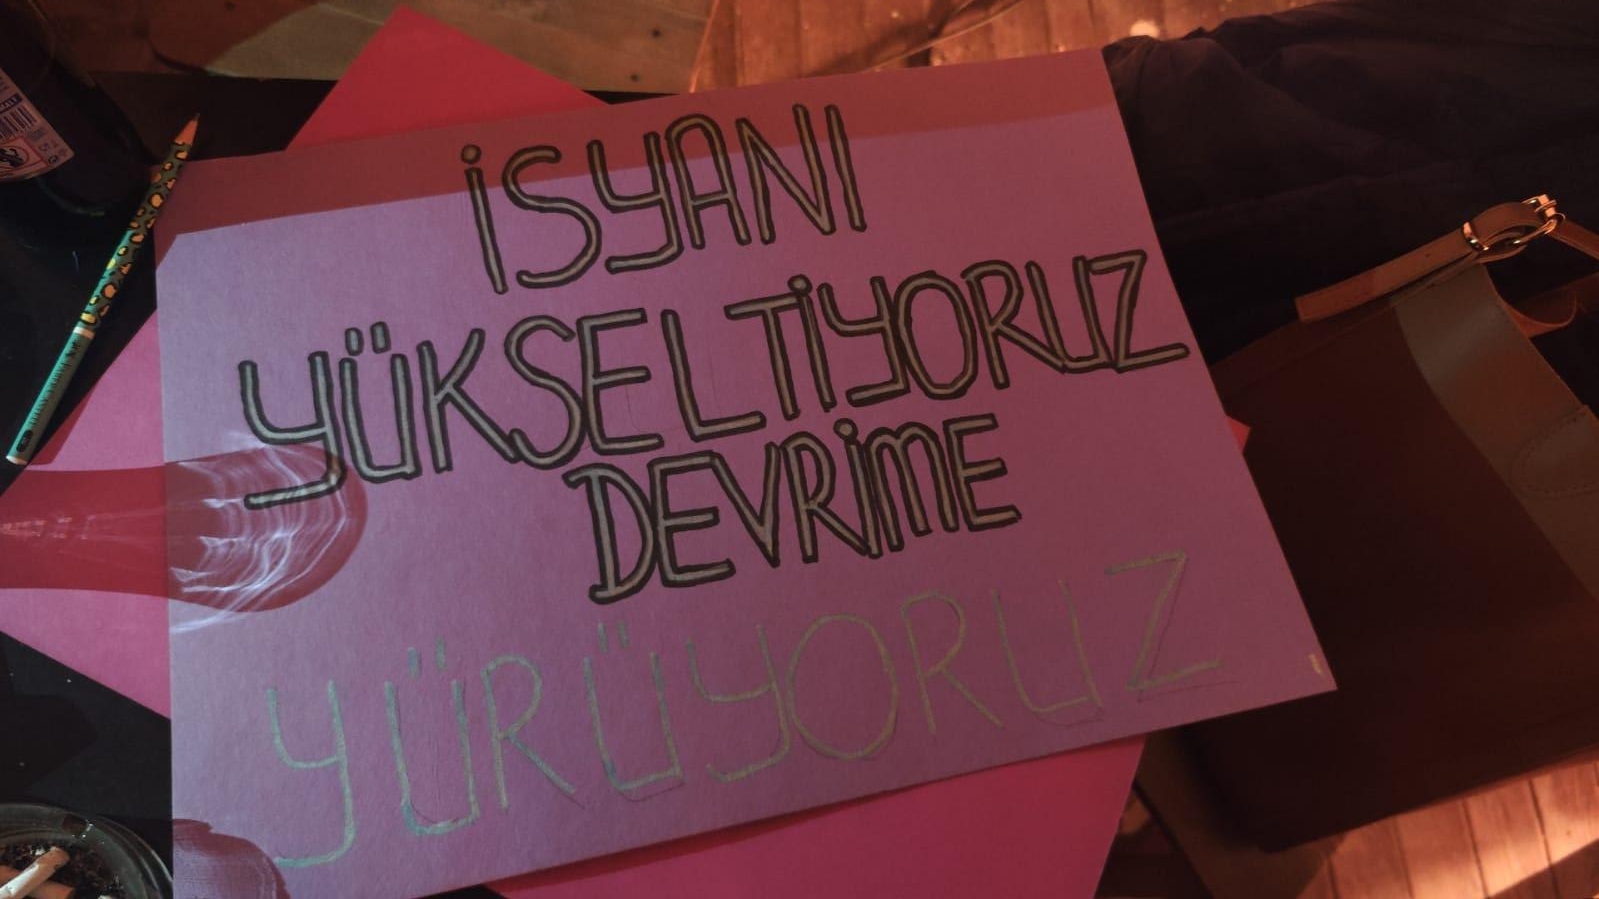 İSYANI
YÜKSELTİYORUZ
DEVRİME
YÜRÜYORUZ